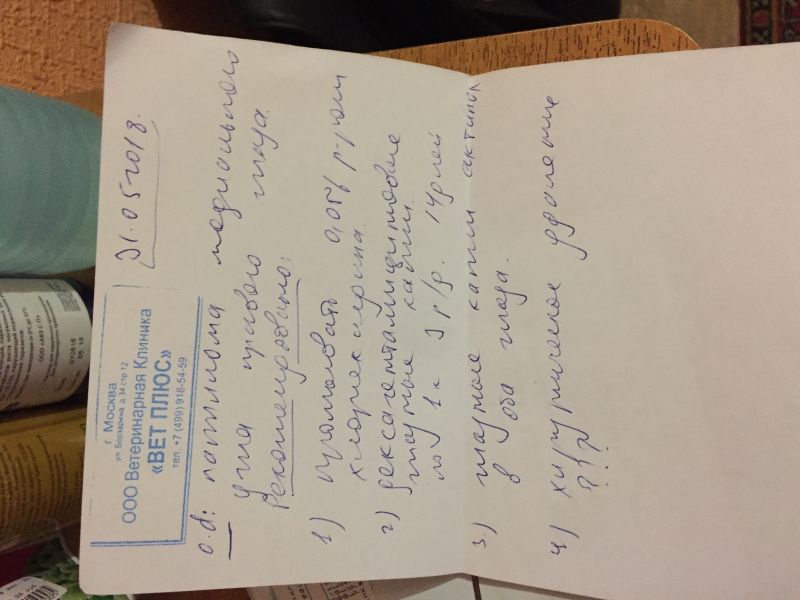 г Москва
ул Бабакина, д 34 стр 12
ООО Ветеринарная Клиника
«ВЕТ ПЛЮС»
тел. +7 (499) 918-54-59
31.05.2018.
o.d: папиллома медиального
угла правого глаза.
Рекомендовано:
1) промывать 0,05% р-ром
хлоргексидина.
2) дексагентамициновые
глазные капли.
по 1к 3 р/д. 14 дней
3) глазные капли актипол
в оба глаза.
4) хирургическое удаление
???
ООО «АВЗ С-П»